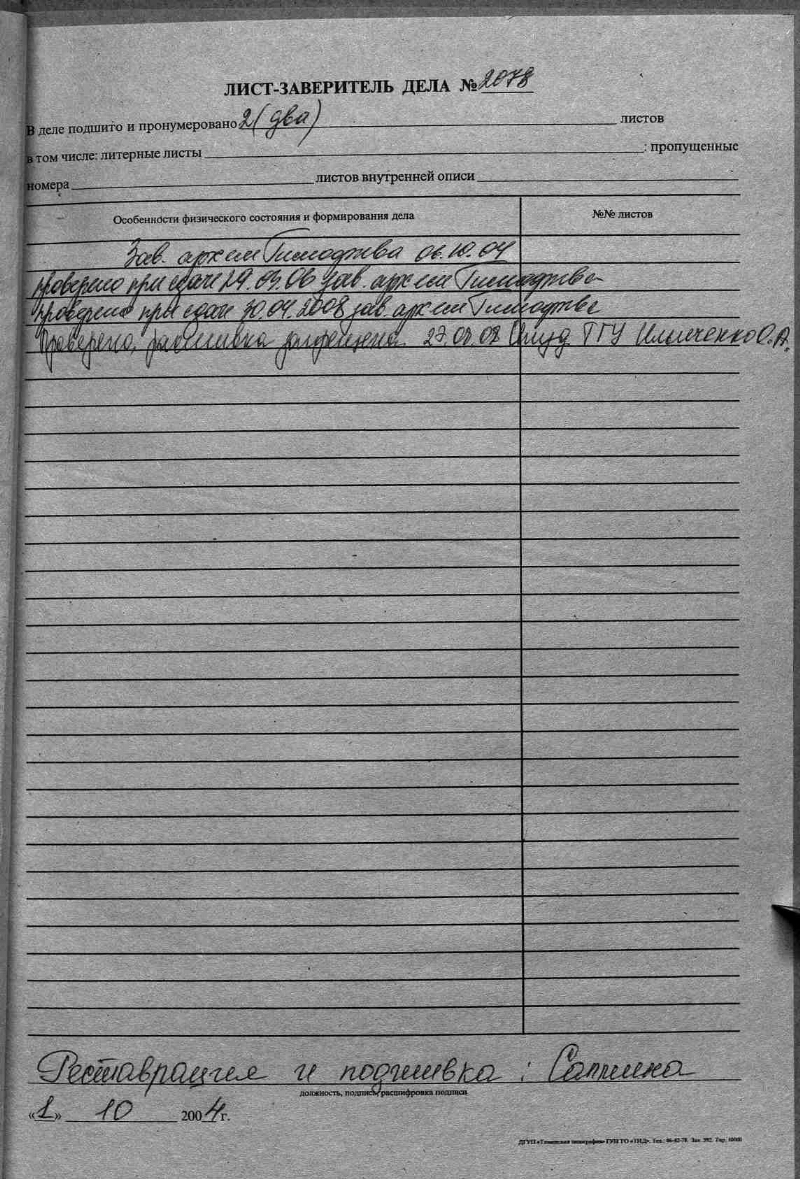 ЛИСТ-ЗАВЕРИТЕЛЬ ДЕЛА № 2078
В деле подшито и пронумеровано 2 (два) листов
в том числе: литерные листы ; пропущенные
номера листов внутренней описи
Особенности физического состояния и формирования дела №№ листов
Зав. архивом Тимофеева 06.10.04
проверено при сдаче 29.03.06 зав. архивом Тимофеева
проверено при сдаче 30.04.2008 зав. архивом Тимофеева
Проверено, расшивка запрещена. 27.08.08 ТГУ Ильиченко О.А.
Реставрация и подшивка: Саттина
должность, подпись, расшифровка подписи
«1» 10 2004 г.
ДГУП «Томская типография» ГУП ТО «ТИД». Тел. 46-82-78. Зак. 392. Тир. 10000